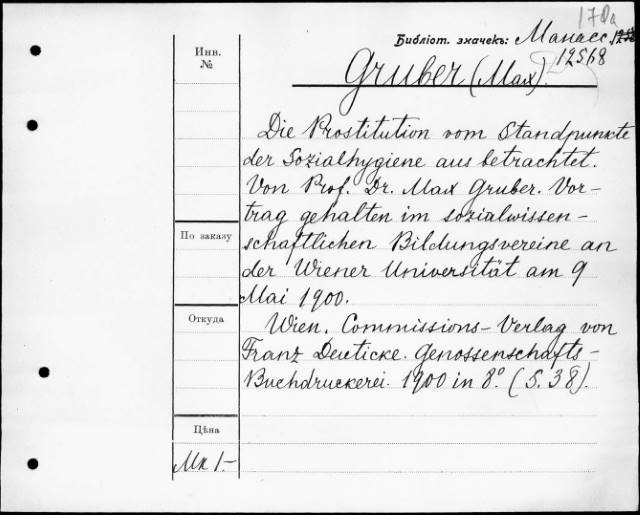 178a
Библіот. значекъ: Манасс.
12568
Инв.
№
Gruber (Max).
Die Prostitution vom Standpunkte
der Sozialhygiene aus betrachtet.
Von Prof. Dr. Max Gruber. Vor-
trag gehalten im sozialwissen-
По заказу
schaftlichen Bildungsvereine an
der Wiener Universität am 9
Mai 1900.
Откуда
Wien. Commissions-Verlag von
Franz Deuticke. Genossenschafts-
Buchdruckerei. 1900 in 8.° (S. 38).
Цѣна
Мк 1.-